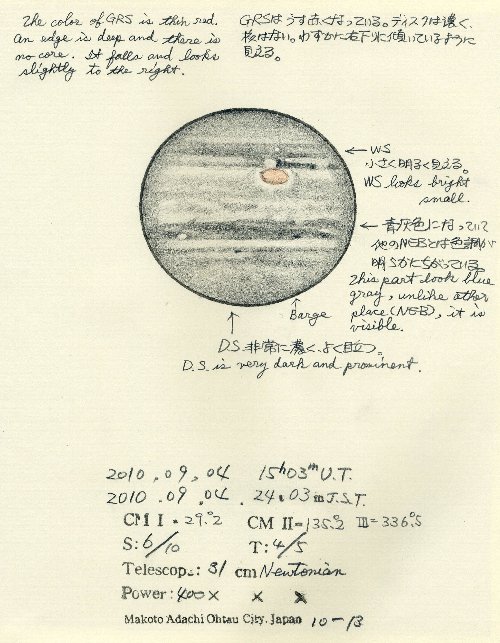 The color of GRS is thin red.
An edge is deep and there is
no core. It falls and looks
slightly to the right.
GRSはうす赤くなっている。ディスクは濃く、
核はない。わずかに右下に傾いているように
見える。
← WS
小さく明るく見える。
WS looks bright
small.
← 青灰色になっていて
他のNEBとは色調が
明らかにちがっている。
This part look blue
gray, unlike other
place (NEB), it is
visible.
↑ Barge
↑
D.S. 非常に濃く、よく目立つ。
D.S. is very dark and prominent.
2010.09.04 15h03m U.T.
2010.09.04. 24:03m J.S.T.
CM I = 29.°2 CM II = 135.°2 III = 336.°5
S: 6/10 T: 4/5
Telescope: 31 cm Newtonian
Power: 400× × ×
Makoto Adachi Ohtau City, Japan 10-13